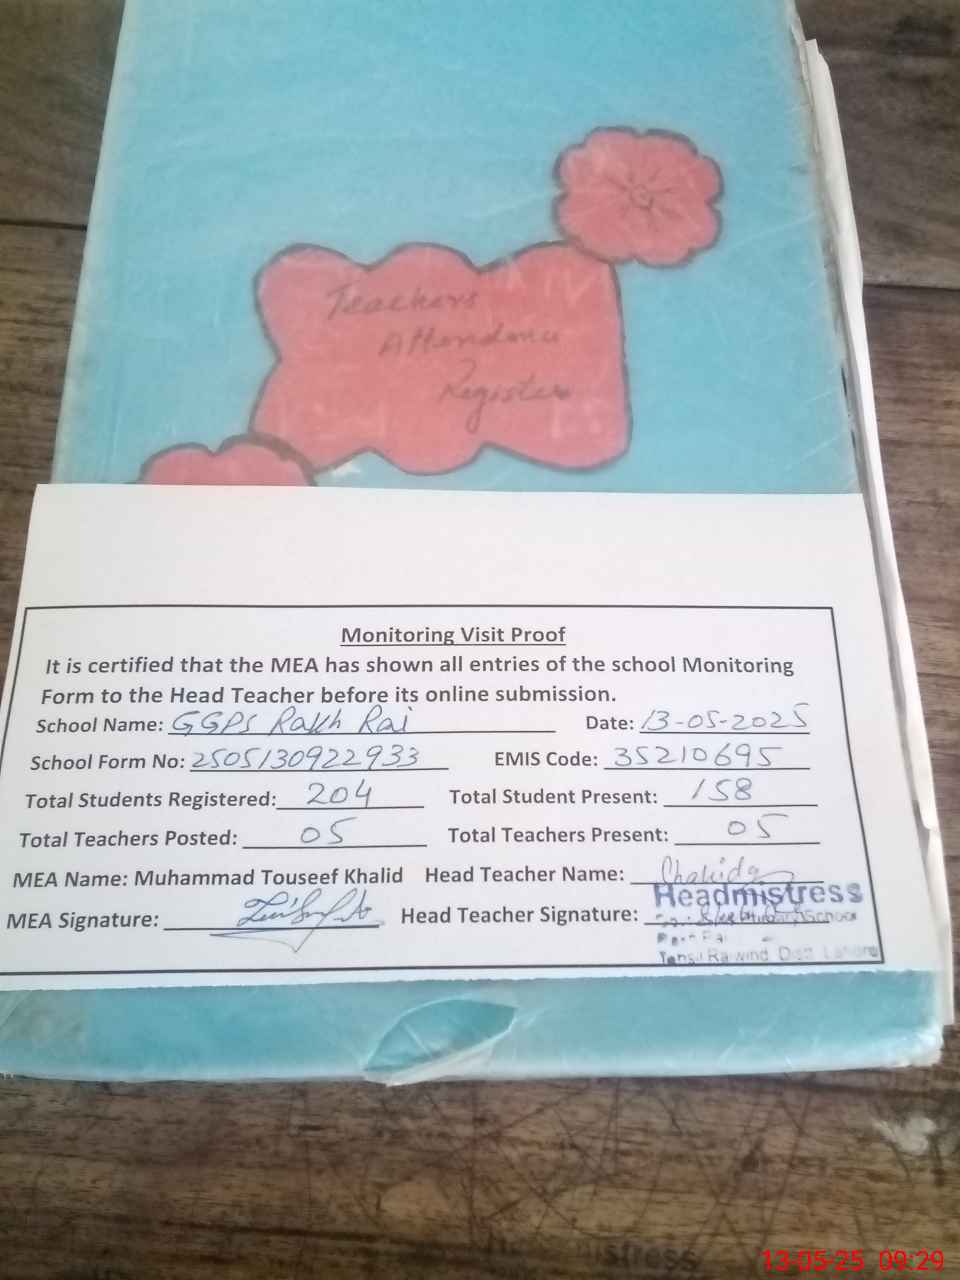 Teachers
Attendance
Register
Monitoring Visit Proof
It is certified that the MEA has shown all entries of the school Monitoring
Form to the Head Teacher before its online submission.
School Name: GGPS Rakh Rai Date: 13-05-2025
School Form No: 2505130922933 EMIS Code: 35210695
Total Students Registered: 204 Total Student Present: 158
Total Teachers Posted: 05 Total Teachers Present: 05
MEA Name: Muhammad Touseef Khalid Head Teacher Name:
MEA Signature: Head Teacher Signature:
Headmistress
School
Rai
Tehsil Raiwind Distt Lahore
13-05-25 09:29